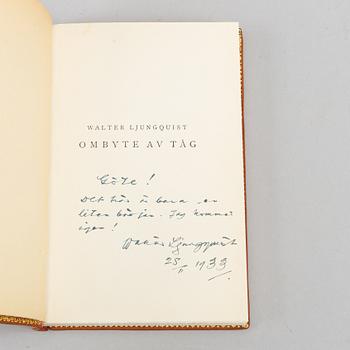 WALTER LJUNGQUIST
OMBYTE AV TÅG
Göte!
Det här är bara en
liten början. Jag kommer
igen!
Walter Ljungquist
1933